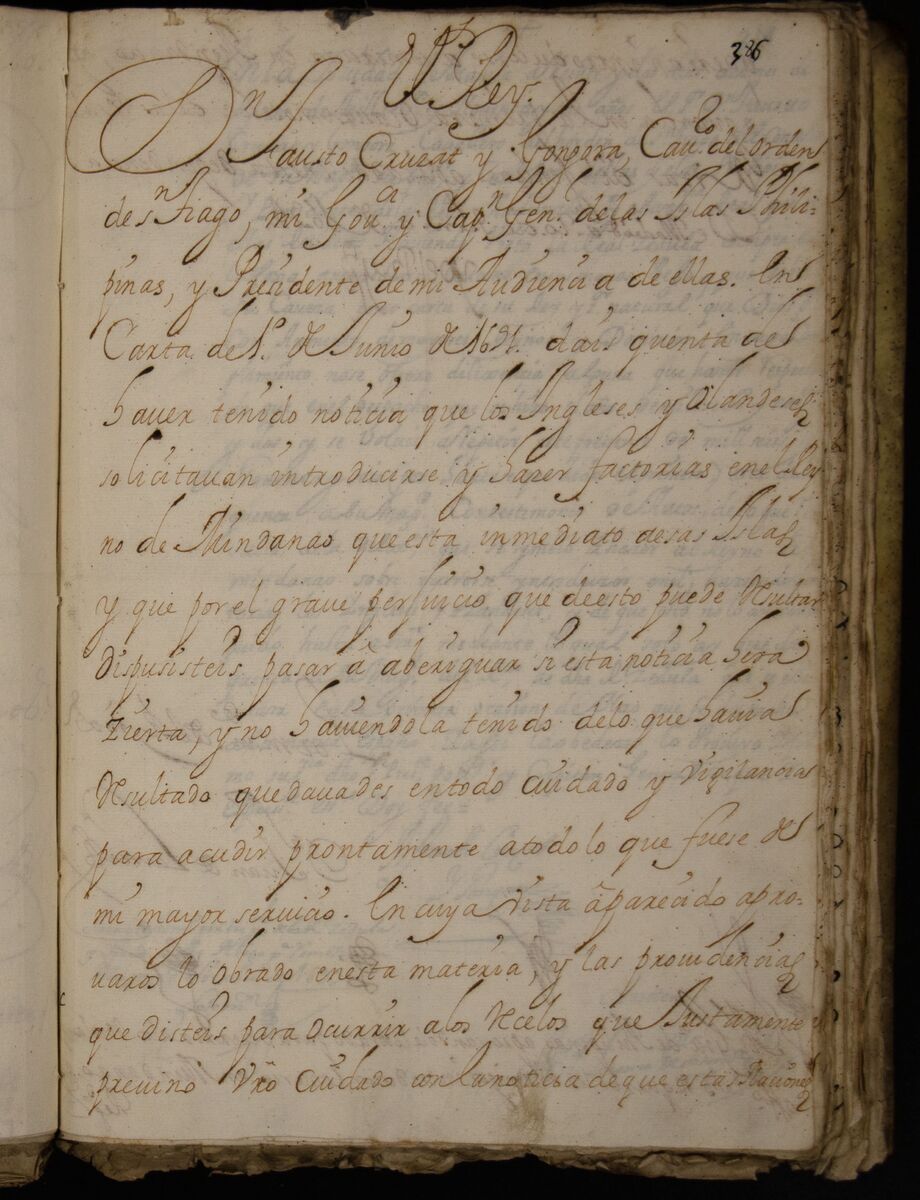 386
El Rey.
Dn Fausto Cruzat y Gongora, Cavo. del orden
de sn tiago, mi Gour. y Capn Genl. de las Islas Phili-
pinas, y Presidente de mi Audiencia de ellas. En
Carta de 1o. de Junio de 1691. dais quenta de
haver tenido noticia que los Ingleses y olandeses
solicitavan introducirse y hazer factorias en el Rey
no de Mindanao que esta inmediato a esas Islas
y que por el grave perjuicio que de esto puede resultar
dispusisteis pasar â aberiguar si esta noticia hera
zierta, y no haviendola tenido de lo que havia
resultado quedavades en todo cuidado y vigilancia
para acudir prontamente a todo lo que fuese de
mi mayor servicio. En cuya vista â parecido apro-
varos lo obrado en esta materia, y las providencias
que disteis para ocurrir a los recelos que Justamente
previno vro Cuidado con la noticia de que estas Naciones